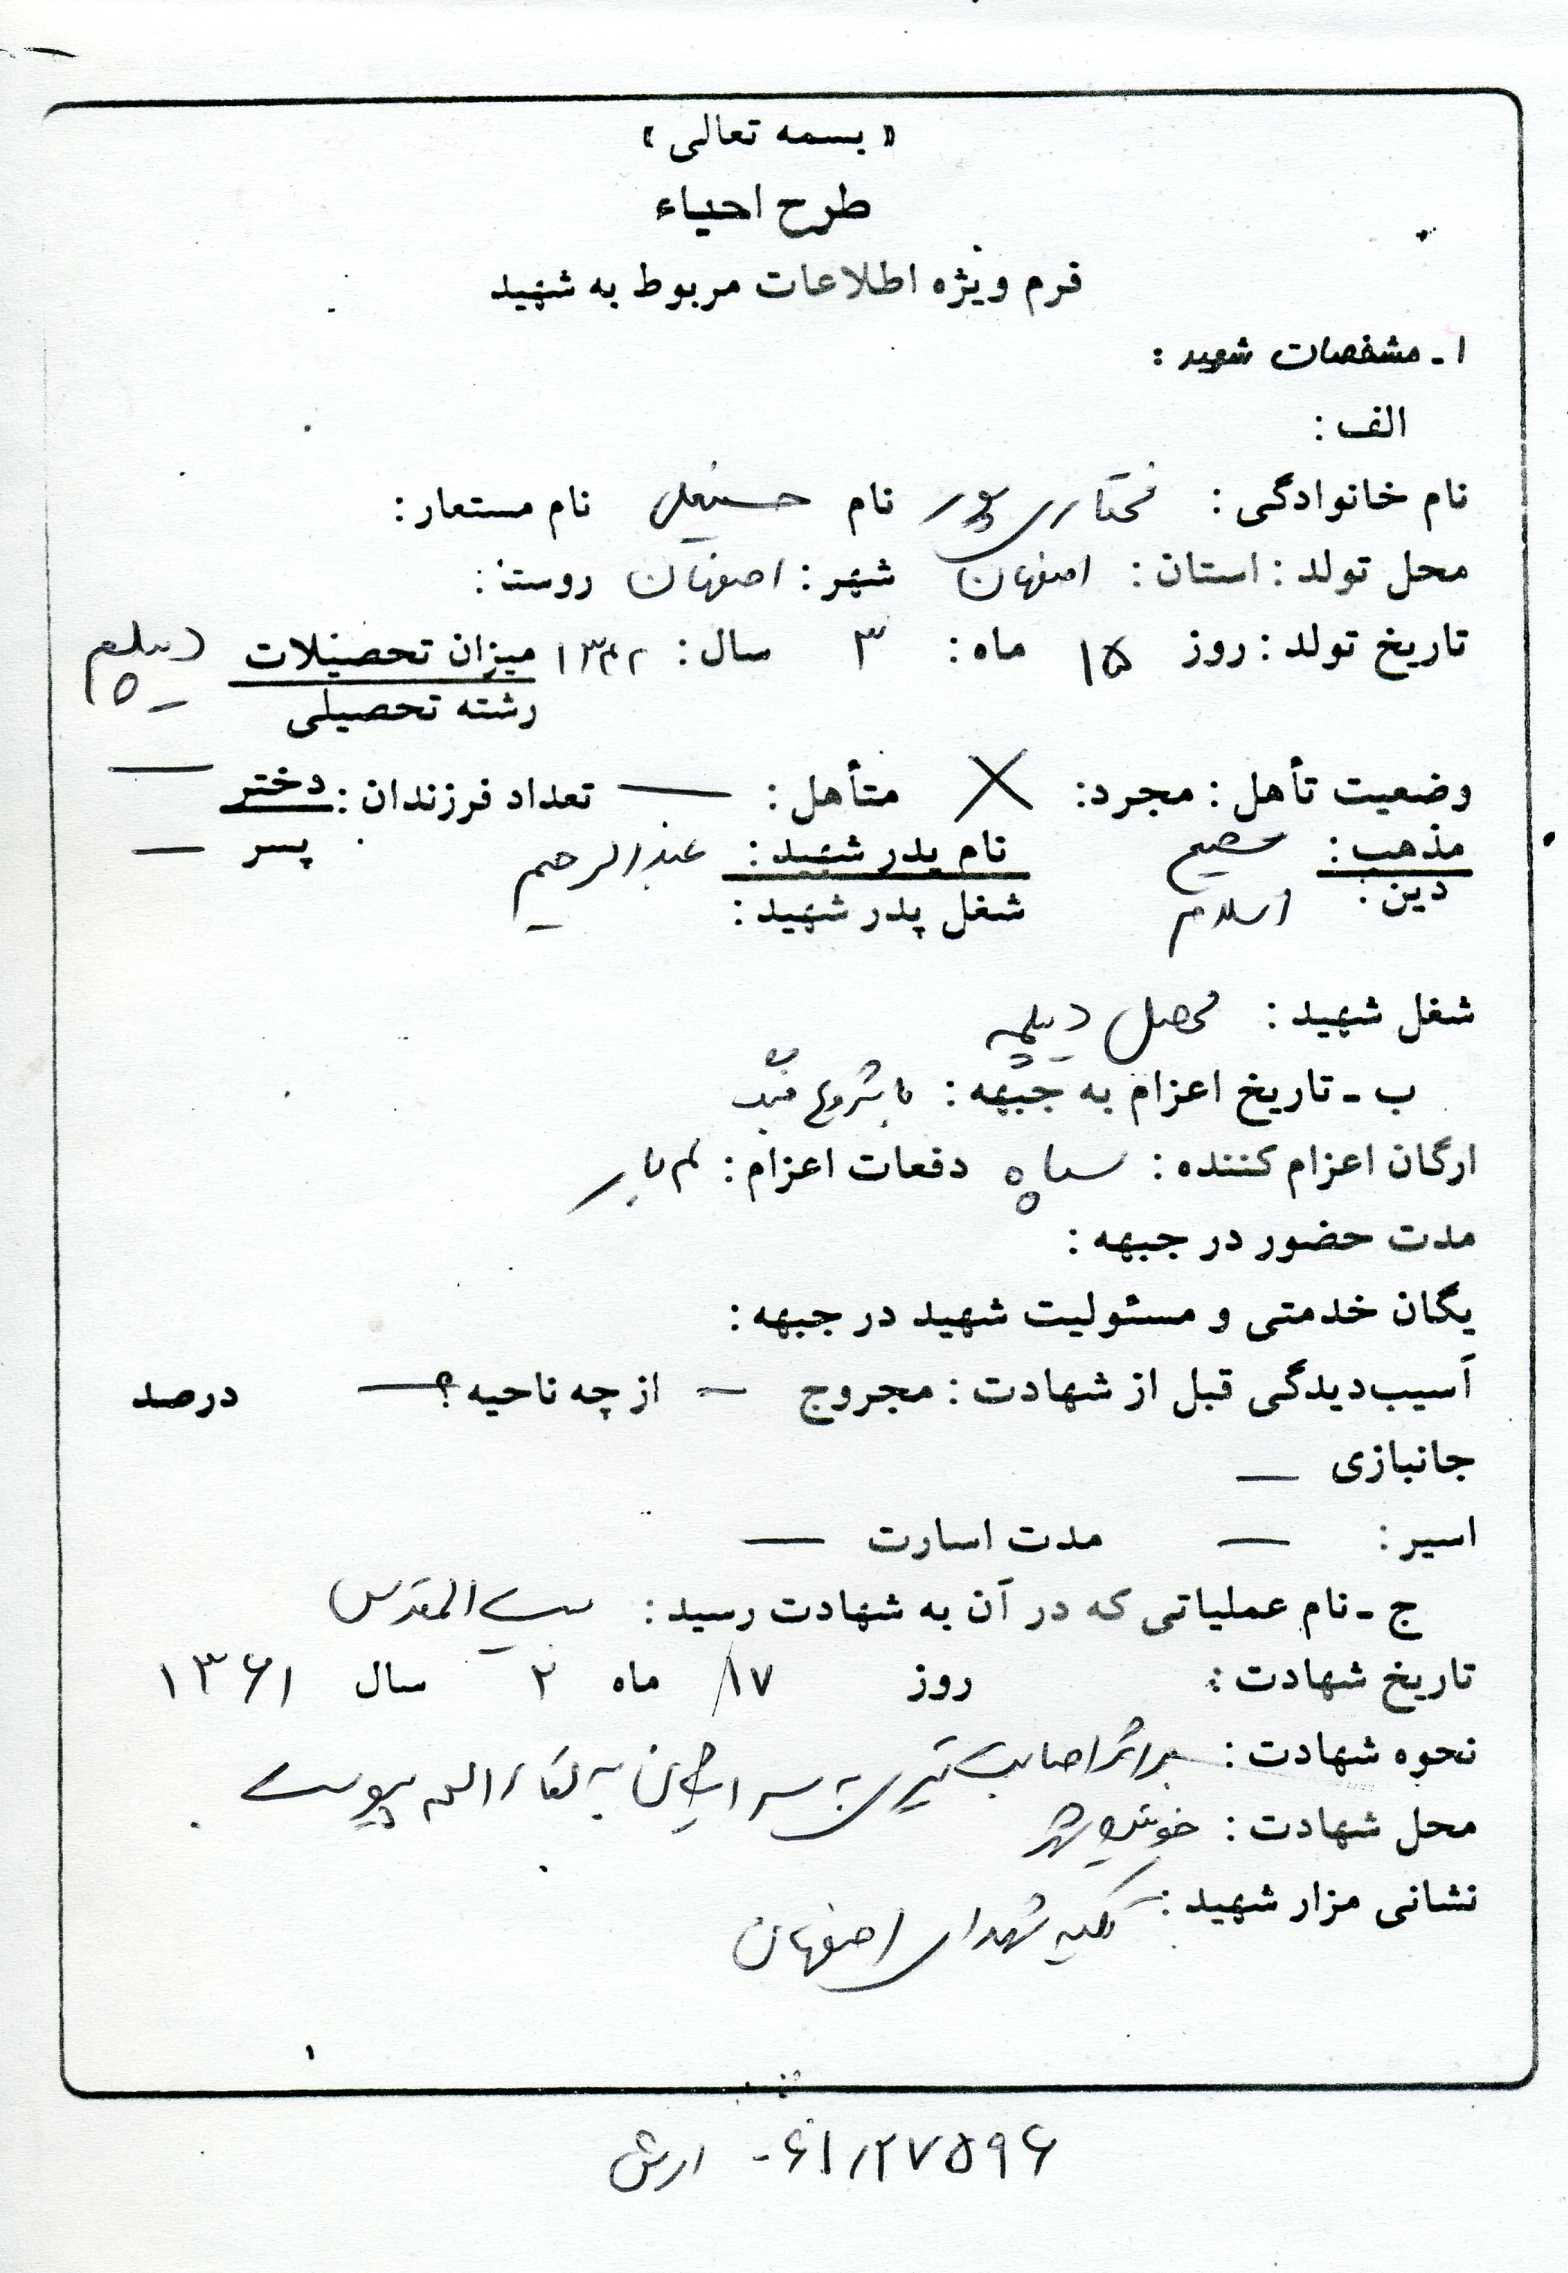 « بسمه تعالی »
طرح احیاء
فرم ویژه اطلاعات مربوط به شهید
۱ - مشخصات شهید :
الف :
نام خانوادگی : مختاری پور نام حسینعلی نام مستعار :
محل تولد : استان : اصفهان شهر : اصفهان روستا :
تاریخ تولد : روز ۱۵ ماه : ۳ سال : ۱۳۴۲ میزان تحصیلات دیپلم
رشته تحصیلی
وضعیت تأهل : مجرد : X متأهل : — تعداد فرزندان : دختر —
مذهب : نام پدر شهید : عبدالرحیم پسر —
دین : اسلام شغل پدر شهید :
شغل شهید : محصل دیپلمه
ب - تاریخ اعزام به جبهه : با شروع
ارگان اعزام کننده : سپاه دفعات اعزام :
مدت حضور در جبهه :
یگان خدمتی و مسئولیت شهید در جبهه :
آسیب‌دیدگی قبل از شهادت : مجروح — از چه ناحیه ؟ — درصد
جانبازی —
اسیر : — مدت اسارت —
ج - نام عملیاتی که در آن به شهادت رسید : بیت المقدس
تاریخ شهادت : روز ۱۷ ماه ۲ سال ۱۳۶۱
نحوه شهادت : بر اثر اصابت تیری به سر ایشان به لقاء الله پیوست
محل شهادت : خونین شهر
نشانی مزار شهید : تکیه شهدای اصفهان
۱
۶۱/۲۷۵۹۶ - ارش